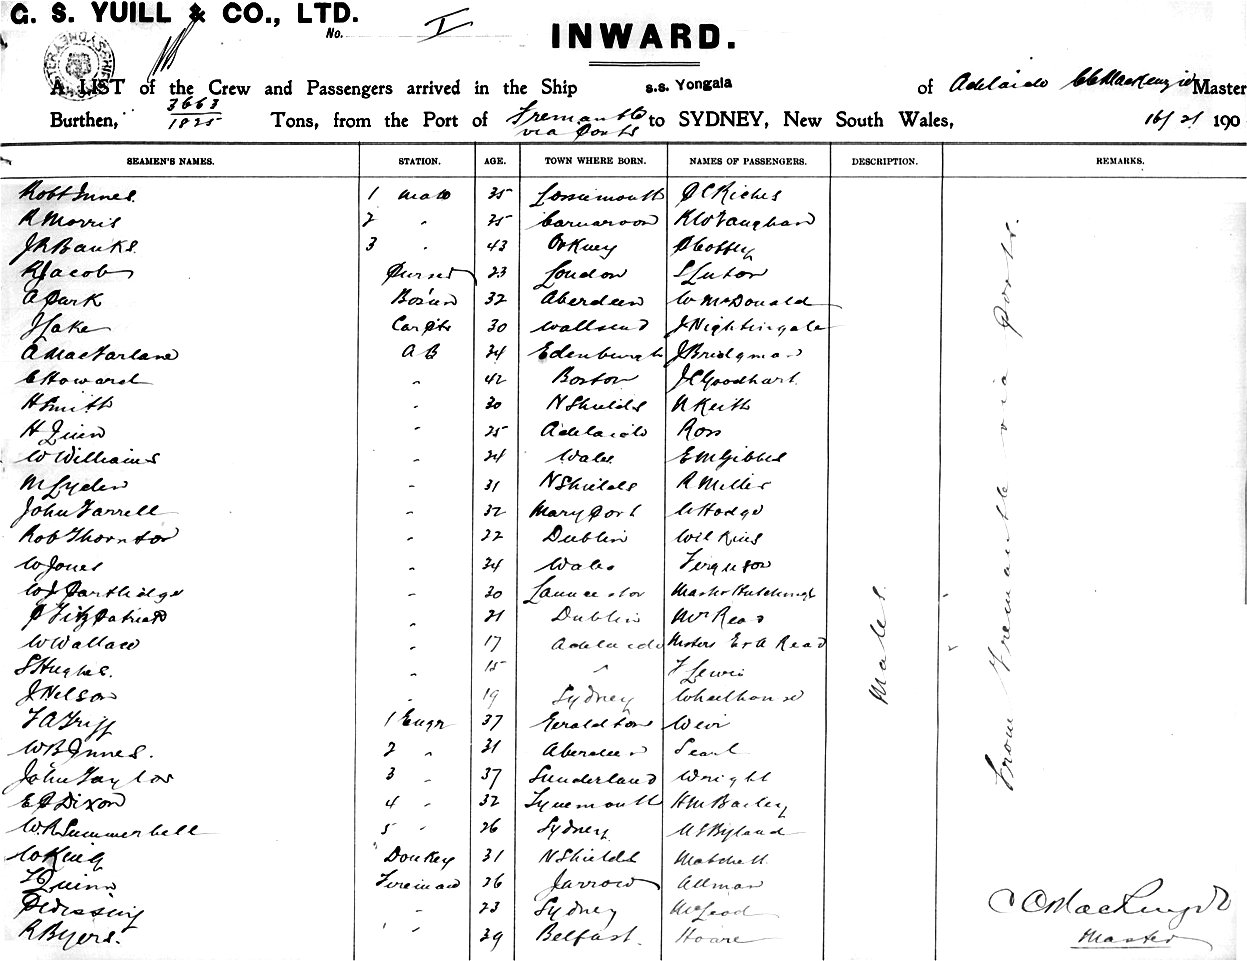 G. S. YUILL & CO., LTD.
No. I
INWARD.
A LIST of the Crew and Passengers arrived in the Ship s.s. Yongala of Adelaide C C MacKenzie Master
Burthen, 3663/1825 Tons, from the Port of Fremantle via Ports to SYDNEY, New South Wales, 16/21 190
SEAMEN'S NAMES. STATION. AGE. TOWN WHERE BORN. NAMES OF PASSENGERS. DESCRIPTION. REMARKS.
Robt Innes 1 Mate 35 Lossiemouth P C Riches
R Morris 2 " 25 Carnarvon R W Vaughan
J R Banks 3 " 43 Orkney
R Jacob Purser 23 London S Luton
A Park Bos'un 32 Aberdeen W McDonald
J Lake Carptr 30 Wallsend J Nightingale
A MacFarlane A B 34 Edenburgh J Bridgman
C Howard " 42 Boston J C Goodhart
H Smith " 30 N Shields N Keith
H Quin " 25 Adelaide Ross
W Williams " 24 Wales E M Gibbes
M Lyden " 31 N Shields R Miller
John Farrell " 32 Mary Port C Hodge
Rob Thornton " 22 Dublin Wilkins
W Jones " 34 Wales Ferguson
W J Partridge " 30 Launceston Master Hutchings
P Fitzpatrick " 21 Dublin Mrs Read
W Wallace " 17 Adelaide Misters E & A Read
S Hughes. " 15 " F Lewis
J Nelson " 19 Sydney Wheelhouse
F A Griff 1 Engr 37 Geraldton Weir
W B Innes. 2 " 31 Aberdeen Searl
John Taylor 3 " 37 Sunderland Wright
E P Dixon 4 " 32 Tynemouth H M Bailey
W R Summerbell 5 " 26 Sydney Byland
W King Donkey 31 N Shields Matchett
Quinn Fireman 26 Jarrow Allman
" 23 Sydney McLeod
R Byers. " 39 Belfast. Hoare
Males.
From Fremantle via Ports.
C C MacKenzie
Master